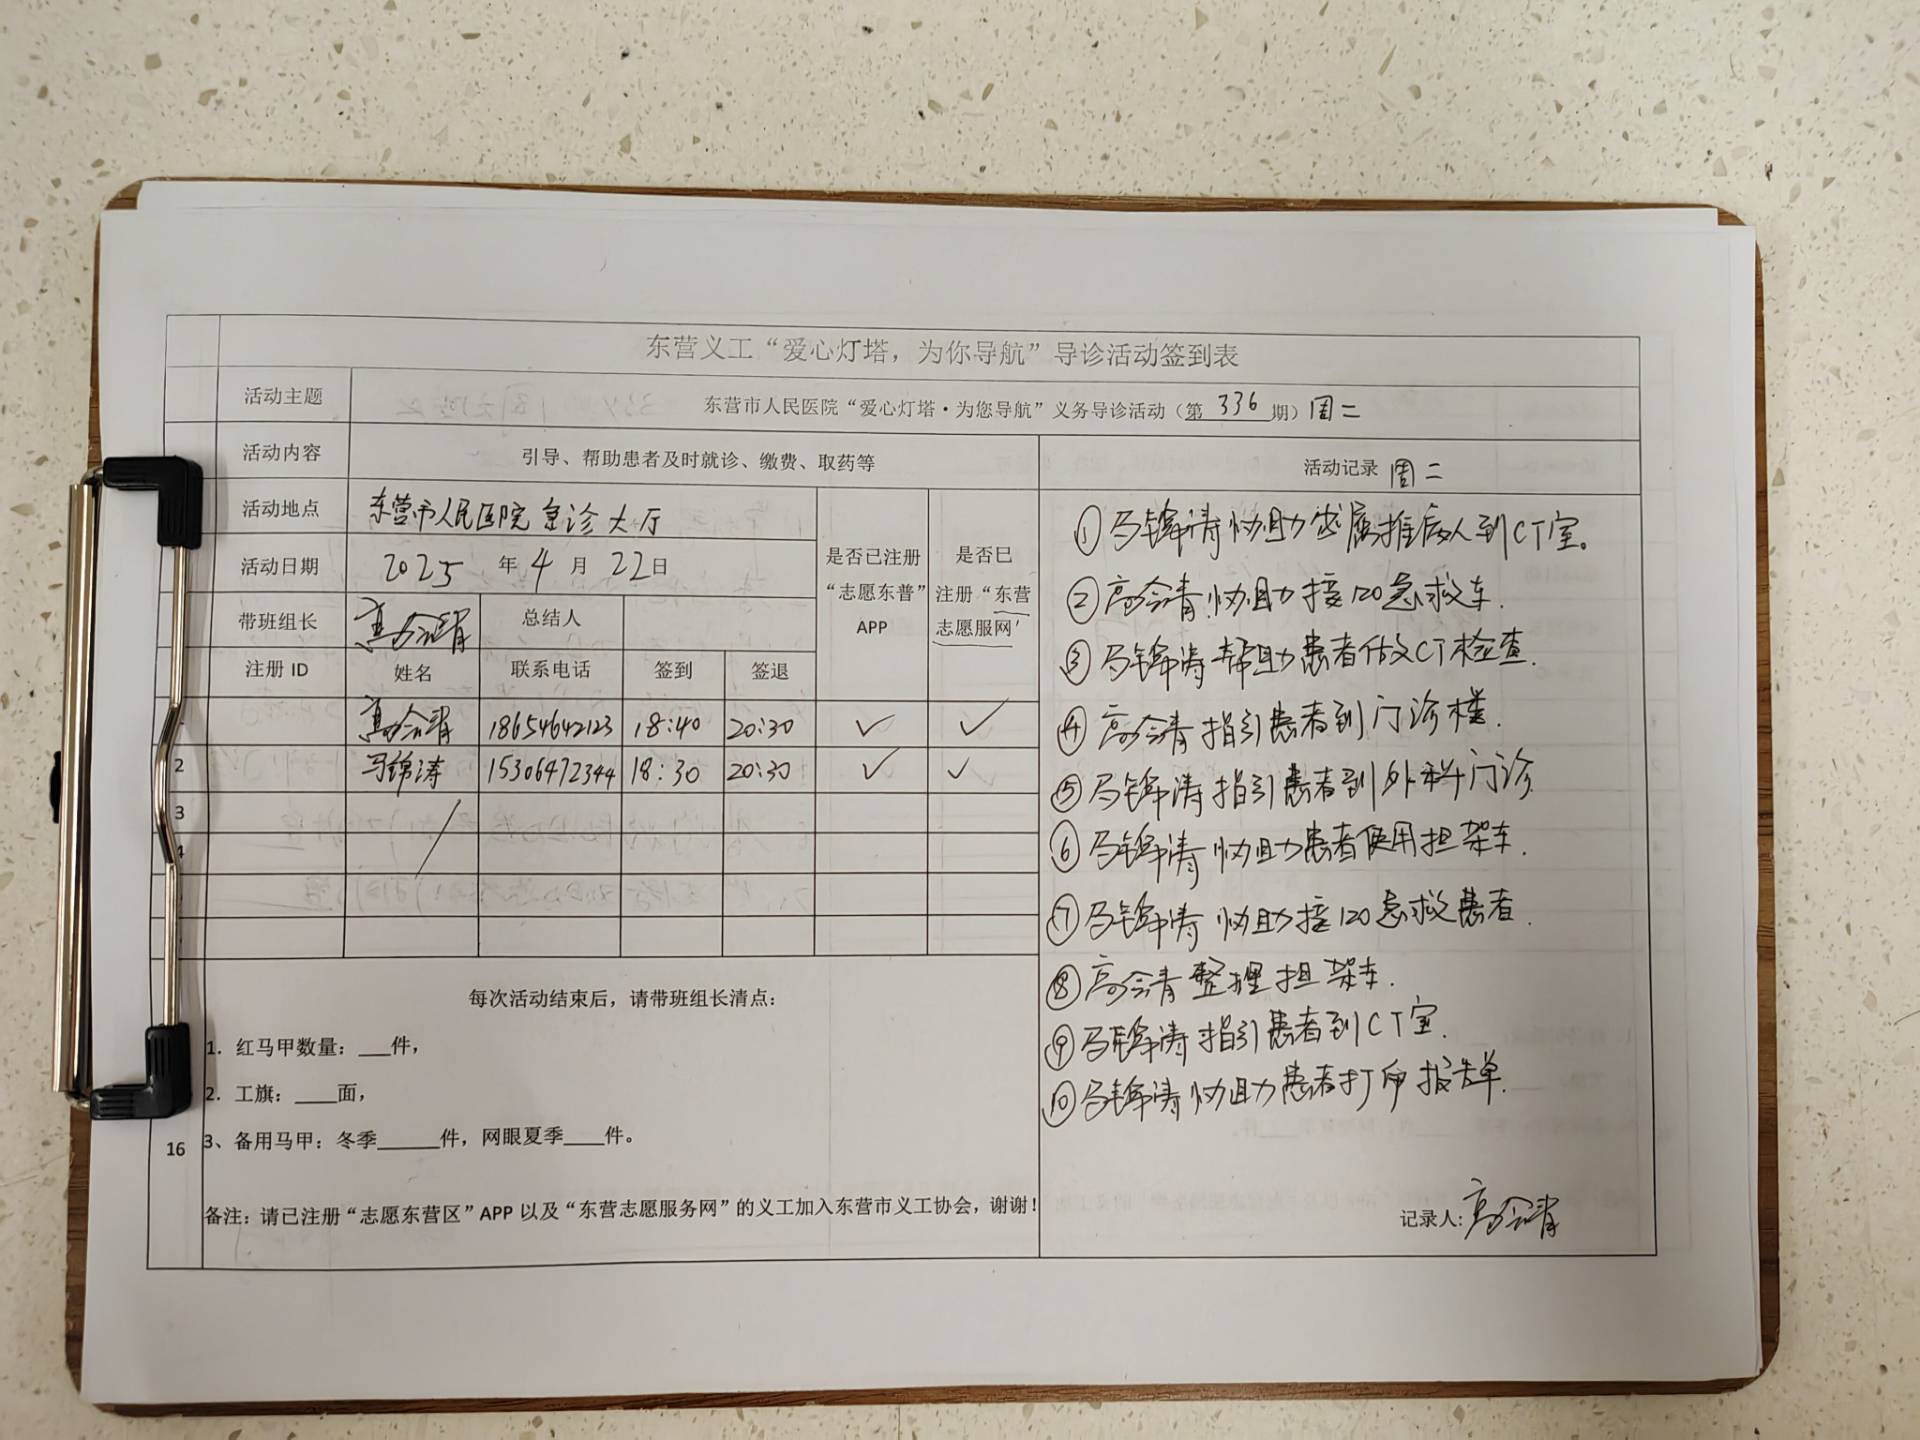 东营义工“爱心灯塔，为你导航”导诊活动签到表
活动主题 东营市人民医院“爱心灯塔·为您导航”义务导诊活动（第 336 期）周二
活动内容 引导、帮助患者及时就诊、缴费、取药等 活动记录 周二
活动地点 东营市人民医院急诊大厅
活动日期 2025 年 4 月 22日
是否已注册“志愿东普”APP
是否巳注册“东营志愿服网’
带班组长 高会清 总结人
注册 ID 姓名 联系电话 签到 签退
高会清 18654642123 18:40 20:30 ✓ ✓
2 马锦涛 15306472344 18:30 20:30 ✓ ✓
3
4
每次活动结束后，请带班组长清点：
1. 红马甲数量：___件，
2. 工旗：____面，
16 3、备用马甲：冬季______件，网眼夏季____件。
备注：请已注册“志愿东营区”APP 以及“东营志愿服务网”的义工加入东营市义工协会，谢谢！
① 马锦涛协助家属推病人到CT室。
② 高会清协助接120急救车.
③ 马锦涛帮助患者做CT检查.
④ 高会清指引患者到门诊楼.
⑤ 马锦涛指引患者到外科门诊
⑥ 马锦涛协助患者使用担架车.
⑦ 马锦涛协助接120急救患者.
⑧ 高会清整理担架车.
⑨ 马锦涛指引患者到CT室.
⑩ 马锦涛协助患者打印报告单.
记录人:高会清